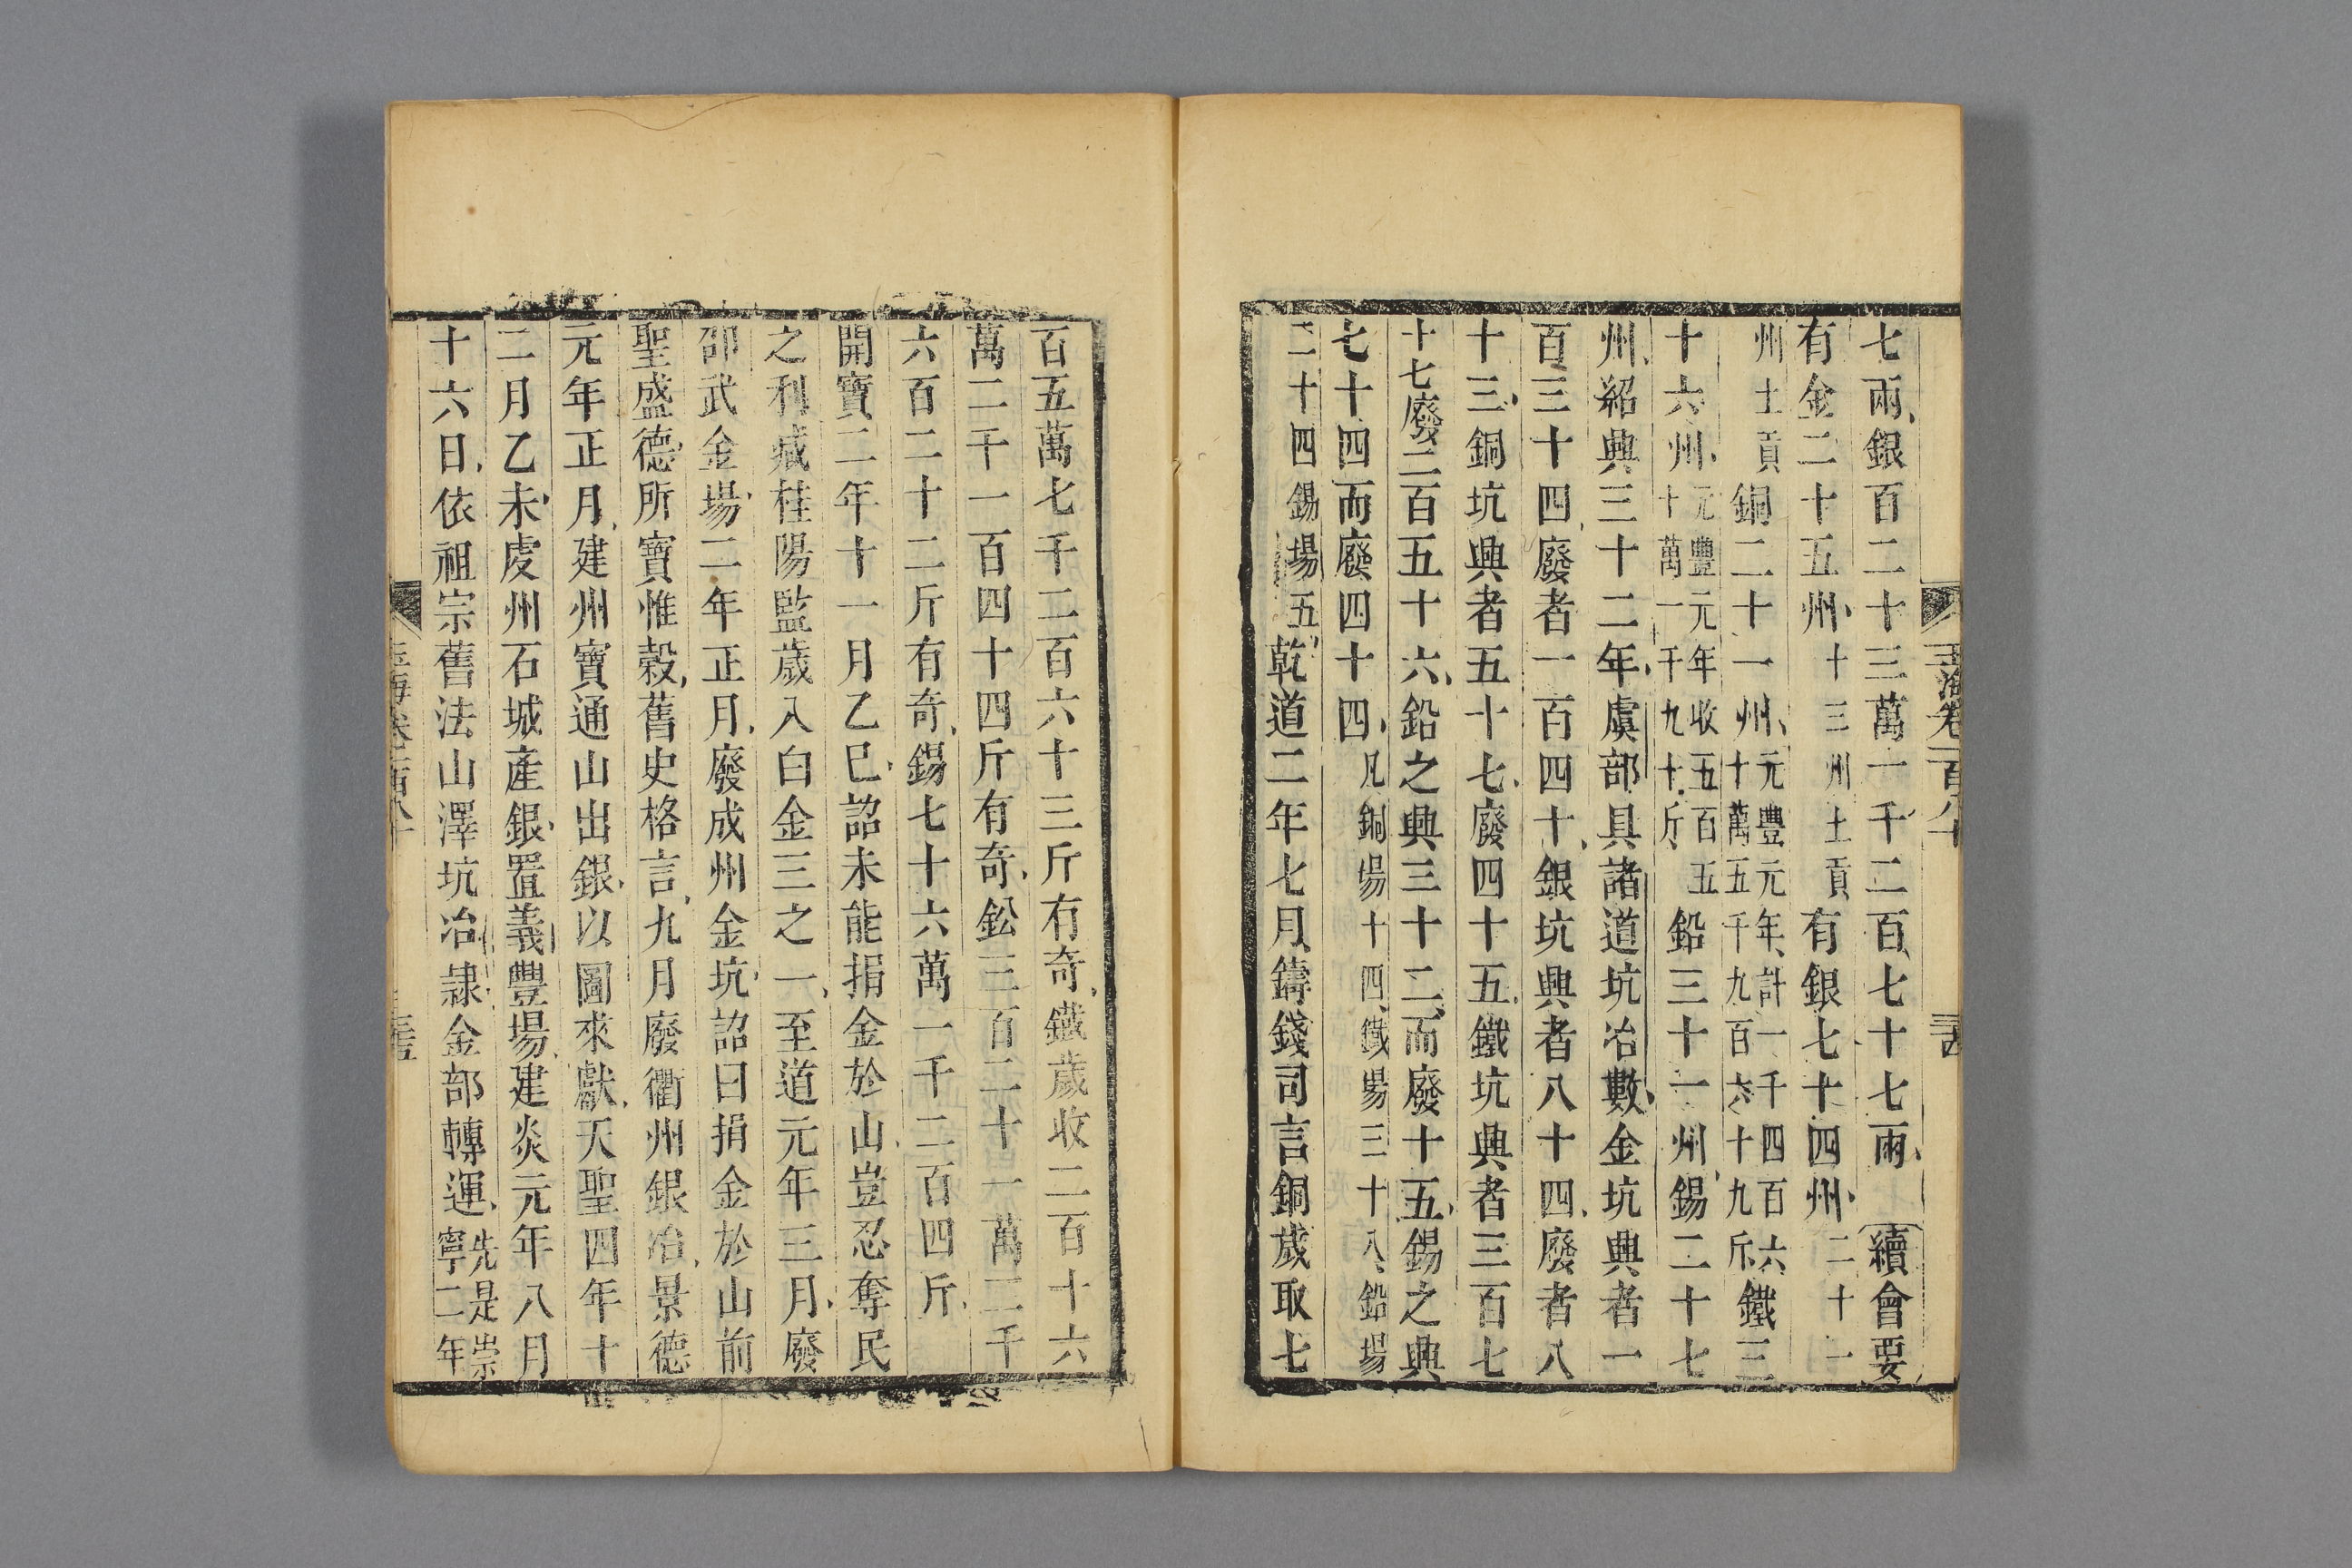 七兩銀百二十三萬一千二百七十七兩續會要
有金二十五州十三州土貢有銀七十四州二十一
州土貢銅二十一州元豐元年計一千四百六十萬五千九百六十九斤鐵三
十六州元豐元年收五百五十萬一千九十斤鉛三十一州錫二十七
州紹興三十二年虞部具諸道坑冶數金坑興者一
百三十四廢者一百四十銀坑興者八十四廢者八
十三銅坑興者五十七廢四十五鐵坑興者三百七
十七廢二百五十六鉛之興三十二而廢十五錫之興
七十四而廢四十四凡銅場十四鐵場三十八鉛場
二十四錫場五乾道二年七月鑄錢司言銅歲取七
玉海卷一百八十
百五萬七千二百六十三斤有奇鐵歲收二百十六
萬二千一百四十四斤有奇鈆三百二十一萬二千
六百二十二斤有奇錫七十六萬一千二百四斤
開寶二年十一月乙巳詔未能捐金於山豈忍奪民
之利減桂陽監歲入白金三之一至道元年三月廢
邵武金場二年正月廢成州金坑詔曰捐金於山前
聖盛德所寶惟穀舊史格言九月廢衢州銀冶景德
元年正月建州寶通山出銀以圖來獻天聖四年十
二月乙未虔州石城產銀置義豐場建炎元年八月
十六日依祖宗舊法山澤坑冶隷金部轉運先是崇寧二年